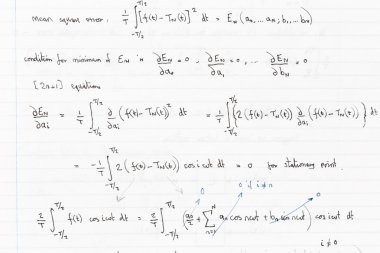 mean square error. 1/T ∫_{-T/2}^{T/2} [f(t) - T_N(t)]² dt = E_N (a₀, ... a_N; b₁, ... b_N)
condition for minimum of E_N is ∂E_N/∂a₀ = 0, ∂E_N/∂a₁ = 0, ... ∂E_N/∂b_N = 0
[2n+1] equations
∂E_N/∂a_i = 1/T ∫_{-T/2}^{T/2} ∂/∂a_i (f(t) - T_N(t))² dt = 1/T ∫_{-T/2}^{T/2} {2 (f(t) - T_N(t)) ∂/∂a_i (f(t) - T_N(t))} dt
= -1/T ∫_{-T/2}^{T/2} 2 (f(t) - T_N(t)) cos iωt dt = 0 for stationary point
0 0 if i≠n 0
2/T ∫_{-T/2}^{T/2} f(t) cos iωt dt = 2/T ∫_{-T/2}^{T/2} (a₀/2 + ∑_{n=1}^{N} a_n cos nωt + b_n sin nωt) cos iωt dt
i≠0